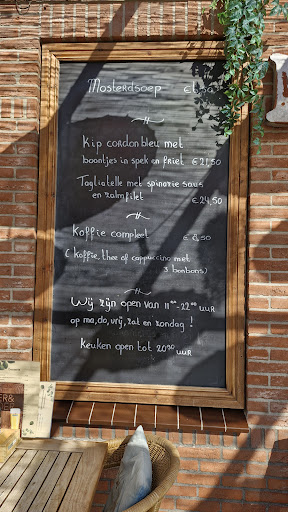 Mosterdsoep
Kip cordonbleu met
boontjes in spek en friet €21,50
Tagliatelle met spinazie saus
en zalmfilet €24,50
Koffie compleet
(koffie, thee of cappuccino met
3 bonbons)
Wij zijn open van 11⁰⁰-22⁰⁰ uur
op ma, do, vrij, zat en zondag!
Keuken open tot 20³⁰ uur